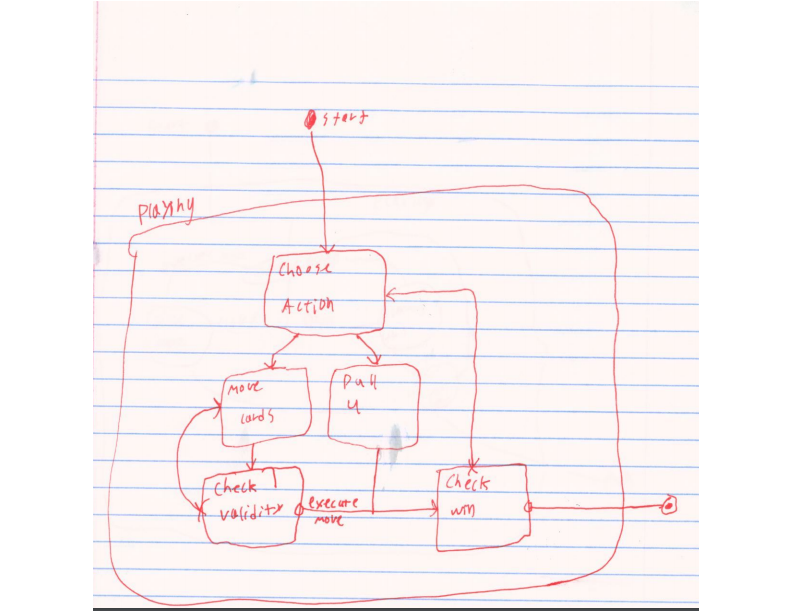 start
Playing
Choose
Action
Move
cards
Pull
4
Check
validity
execute
move
Check
win